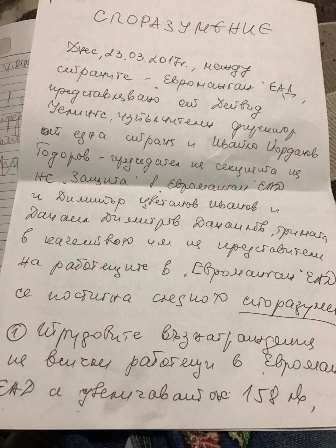 СПОРАЗУМЕНИЕ
Днес, 23.03.2017г., между
страните - "Евроманган" ЕАД,
представлявано от Дейвид
изпълнителен директор
от една страна и Ивайло Йорданов
Тодоров - председател на секцията на
НС Защита в Евроманган ЕАД
и Димитър Цветанов Иванов и
Данаил Димитров тримата
в качеството им на представители
на работещите в "Евроманган" ЕАД
се постигна следното споразумен
① 1. Трудовите възнаграждения
на всички работещи в Евроман
ЕАД а увеличават с 158 лв,